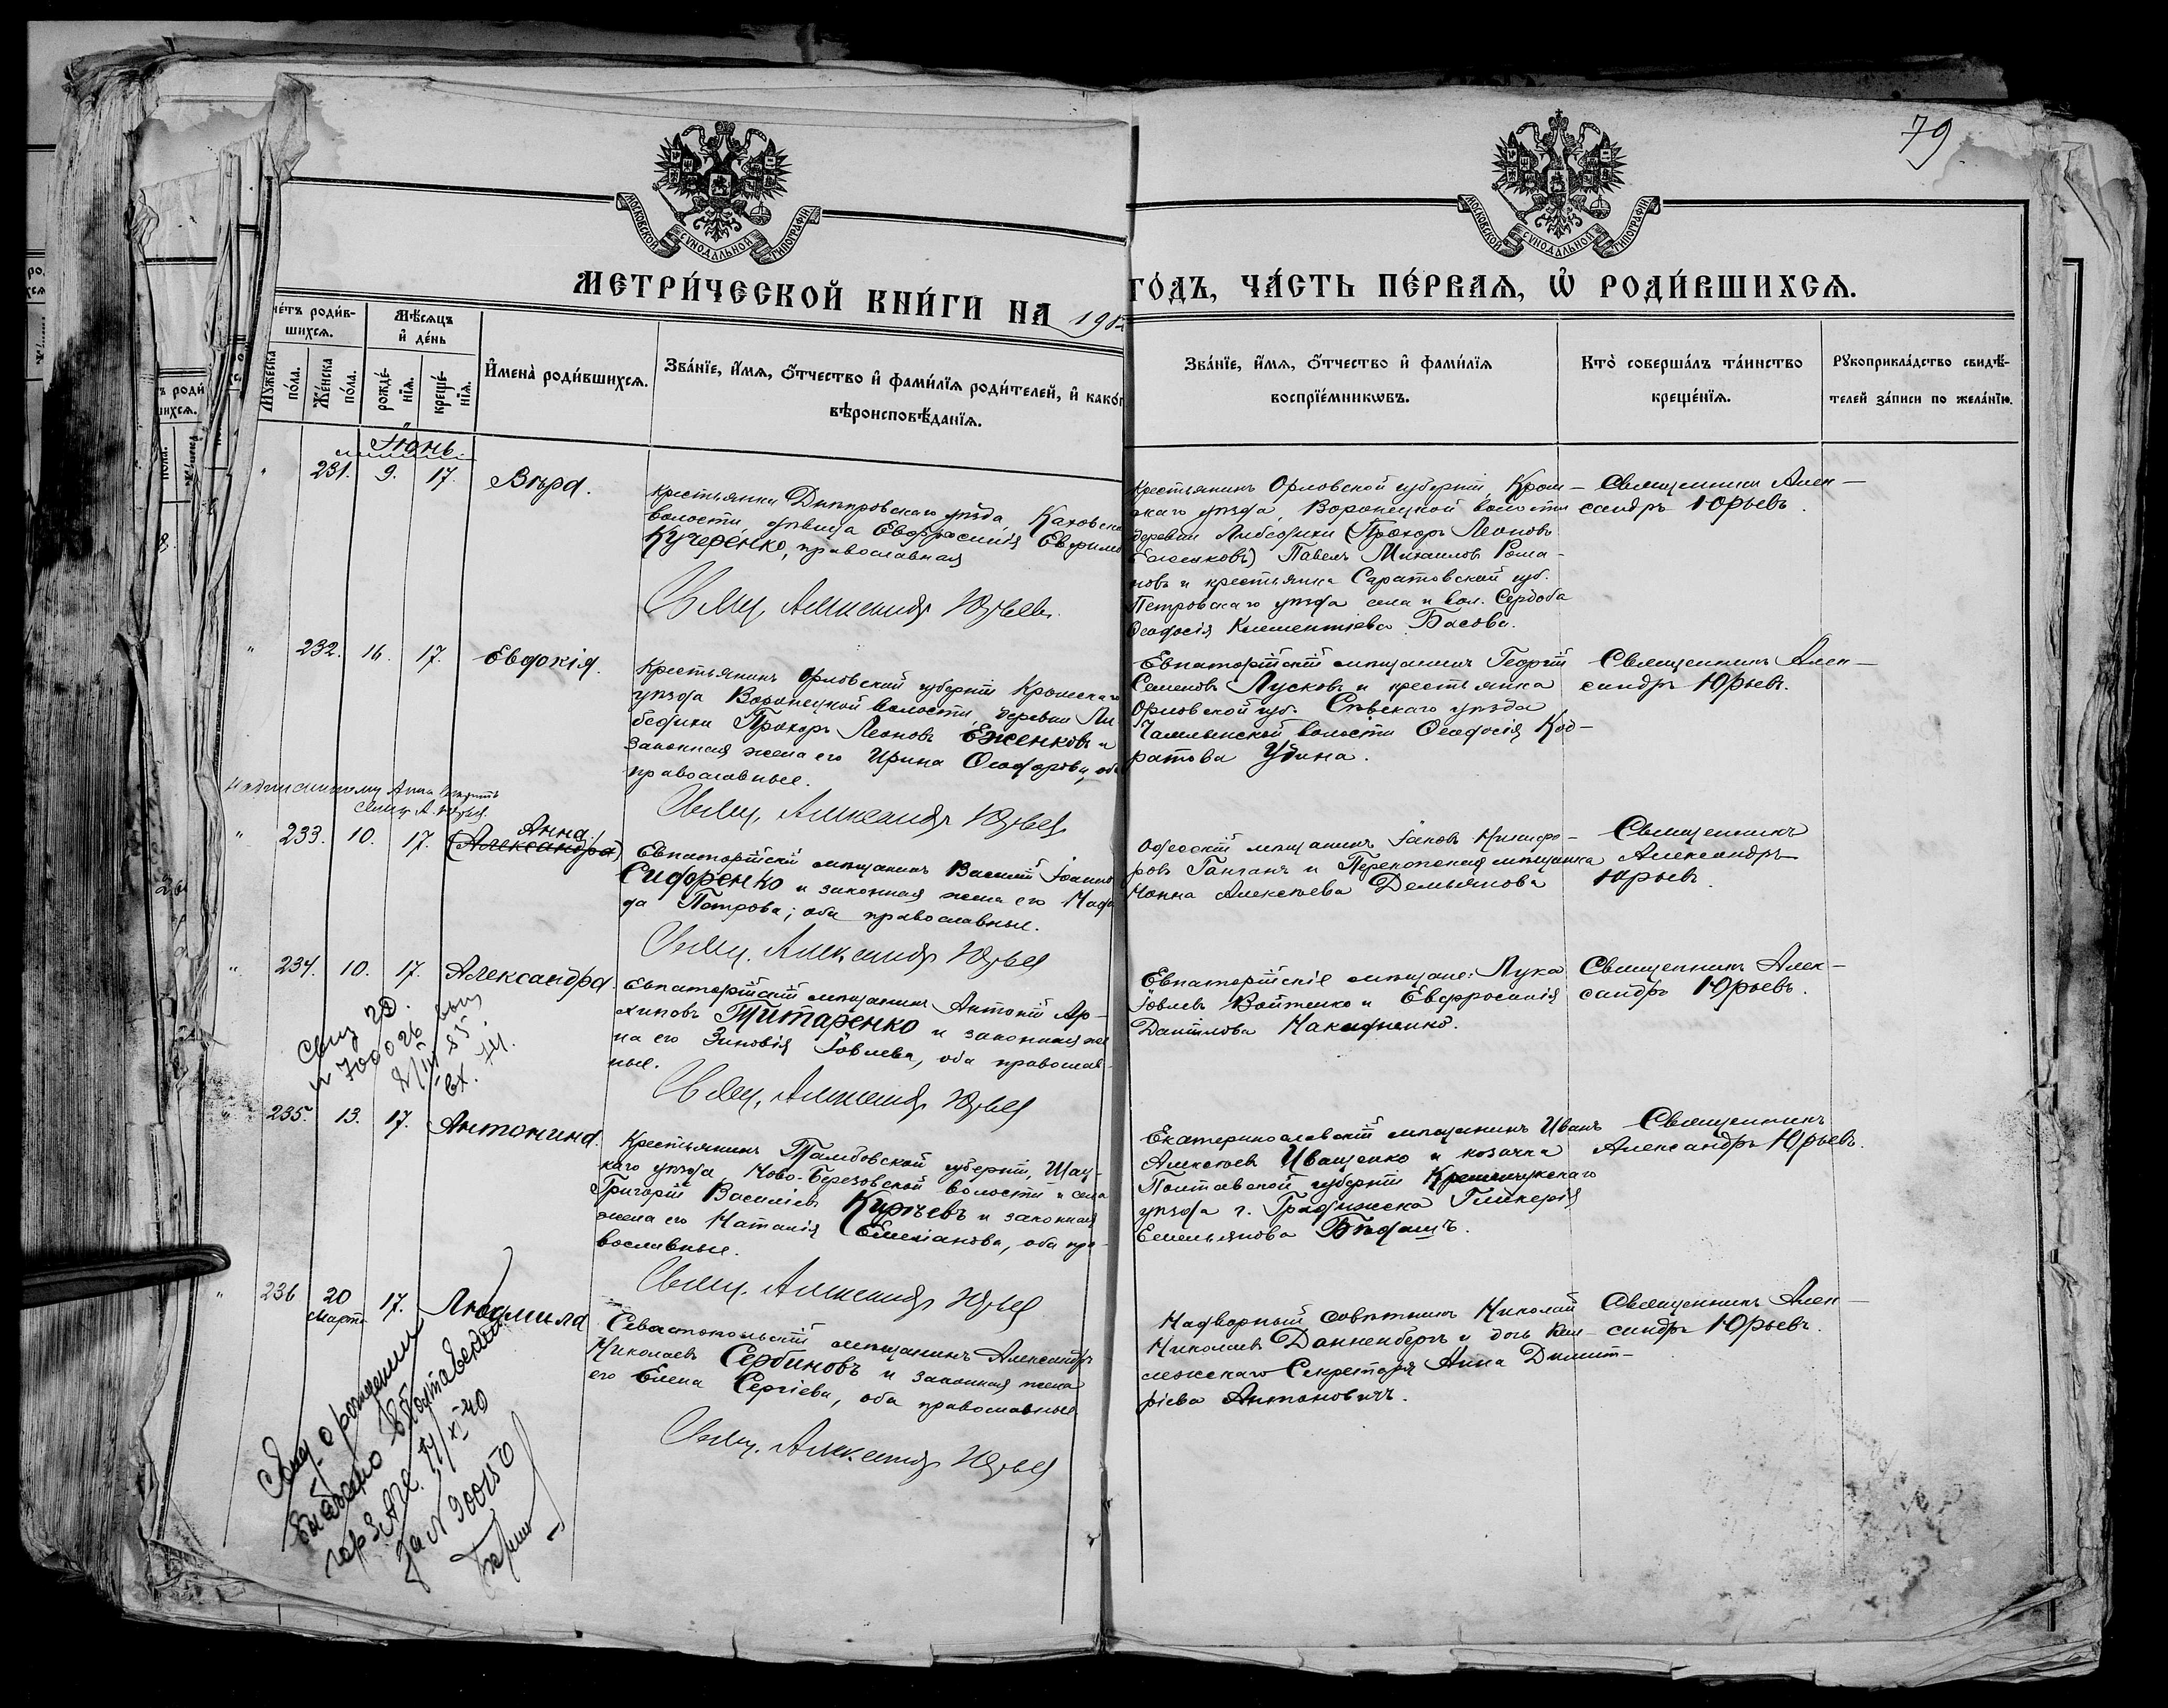 79
МОСКОВСКОЙ СѴНОДАЛЬНОЙ ТИПОГРАФІИ
МОСКОВСКОЙ СѴНОДАЛЬНОЙ ТИПОГРАФІИ
МЕТРИ́ЧЕСКОЙ КНИ́ГИ НА 190
ГО́ДЪ, ЧА́СТЬ ПЕ́РВАЯ, Ѡ҆ РОДИ́ВШИХСЯ.
роди́в-
шихся.
Мѣ́сяцъ
и҆ де́нь
Му́жеска
по́ла.
Же́нска
по́ла.
рожде́-
нїя.
креще́-
нїя.
И҆мена̀ роди́вшихся.
Зва́нїе, и҆́мя, ѻ҆́тчество и҆ фами́лїя роди́телей, и҆ како́г
вѣроисповѣ́данїя.
Зва́нїе, и҆́мя, ѻ҆́тчество и҆ фами́лїя
воспрїе́мникѡвъ.
Кто̀ соверша́лъ та́инство
креще́нїя.
Рꙋкоприкла́дство свидѣ́-
телей за́писи по жела́нїю.
Іюнь.
" 231. 9. 17. Вѣра.
Крестьянка Днѣпровскаго уѣзда, Каховско
волости, дѣвица Евфросинія Ефимо
Кучеренко, православная
Свящ. Александр Юрьев.
Крестьянинъ Орловской губерніи, Кром-
скаго уѣзда, Воронецкой волости
деревни (Прохоръ Леоновъ
Павелъ Михаиловъ Рома-
новъ и крестьянка Саратовской губ.
Петровскаго уѣзда села и вол. Сердоба
Ѳеодосія Климентіева Басова.
Священникъ Алек-
сандръ Юрьевъ.
" 232. 16. 17. Евдокія.
Крестьянинъ Орловской губерніи Кромскаго
уѣзда Воронецкой волости, деревни
Прохоръ Леоновъ Еженковъ и
законная жена его Ирина Ѳеодорова, оба
православные.
Свящ. Александр Юрьев
Евпаторійскій мѣщанинъ Георгій
Семеновъ Лусковъ и крестьянка
Орловской губ. Сѣвскаго уѣзда
волости Ѳеодосія Код-
ратова Удина.
Священникъ Алек-
сандръ Юрьевъ.
Надписанному Анна вѣрить
свящ. А. Юрьев.
" 233. 10. 17. Анна.
(Александра)
Евпаторійскій мѣщанинъ Василій Іоанно
Сидоренко и законная жена его Наде
да Петрова; оба православные.
Свящ. Александр Юрьев
Одесскій мѣщанинъ Іаковъ Никифо-
ровъ Ганганъ и Перекопская мѣщанка
Нонна Алексѣева Демьянова
Священникъ
Александръ
Юрьевъ.
" 234. 10. 17. Александра
Евпаторійскій мѣщанинъ Антоній Ар-
хиповъ Титаренко и законная же
на его Зиновія Іовлева, оба православ-
ные.
Свящ. Александр Юрьев
Евпаторійскіе мѣщане: Лука
Іовлевъ Войтенко и Евфросинія
Даніилова
Священникъ Алек-
сандръ Юрьевъ.
" 235. 13. 17. Антонина.
Крестьянинъ Тамбовской губерніи, Шац-
каго уѣзда Ново-Березовской волости и села
Григорій Василіевъ Киреевъ и законная
жена его Наталія Емеліанова, оба пра-
вославные.
Свящ. Александр Юрьев
Екатеринославскій мѣщанинъ Иванъ
Алексѣевъ Иващенко и козачка
Полтавской губерніи Кременчукскаго
уѣзда г. Градижска Гликерія
Емельянова
Священникъ
Александръ Юрьевъ.
" 236 20 17. Людмила
Марта
Севастопольскій мѣщанинъ Александръ
Николаевъ Сербиновъ и законная жена
его Елена Сергіева, оба православные
Свящ. Александр Юрьев
Надворный совѣтникъ Николай
Николаевъ Данненбергъ и дочь Кол-
лежскаго Секретаря Анна Димит-
ріева Антоновичъ.
Священникъ Алек-
сандръ Юрьевъ.
Свид. о рождении
выдано
гор ЗАГС.
за № 900150